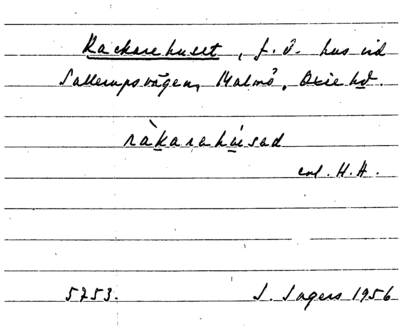 Rackarehuset, f.d. hus vid
Sallerupsvägen, Malmö, Oxie hd.
ràkarahúsad
enl. H.H.
5753. I. Ingers 1956